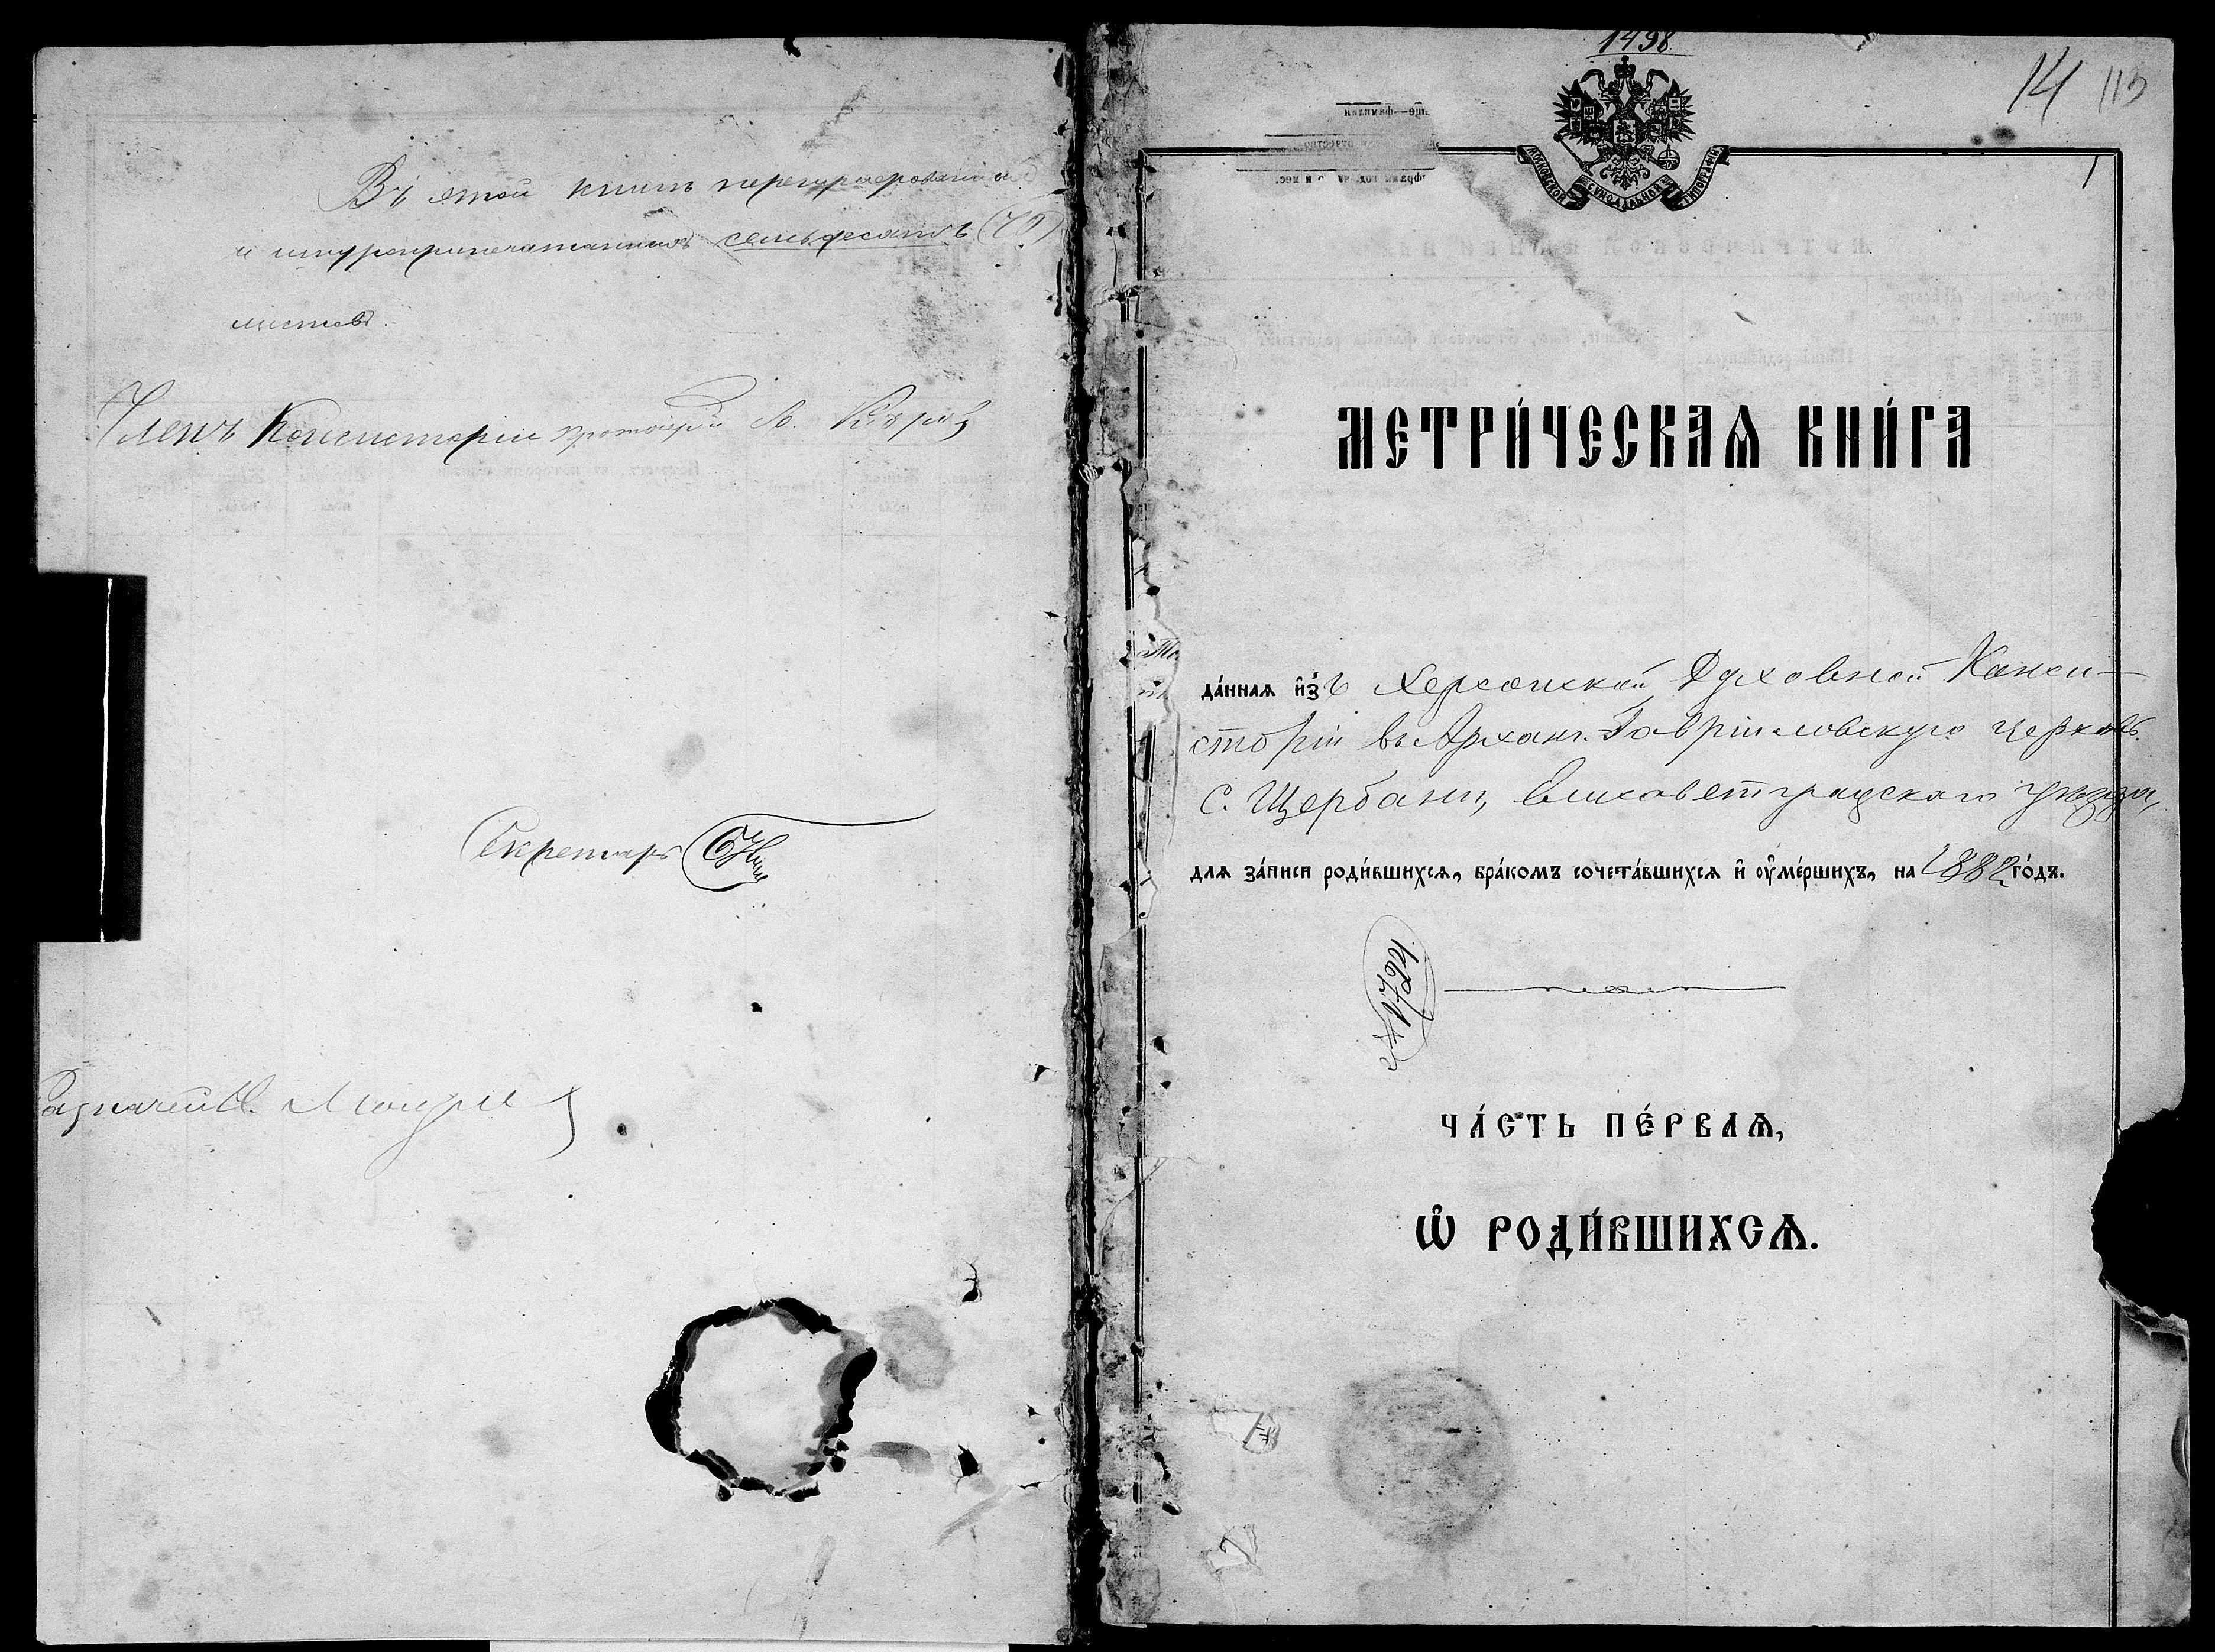 Въ этой книгѣ перенумерованныхъ
и шнуроприпечатанныхъ семьдесятъ (70)
листовъ.
Членъ Консисторіи протоіерей
Секретарь
Казначей
1498
14 115
1
МОСКОВСКОЙ СѴНОДАЛЬНОЙ ТИПОГРАФІИ
МЕТРИ́ЧЕСКАѦ КНИ́ГА
да́ннаѧ и҆з̾ъ Херсонской Духовной Конси-
сторіи въ Архан. Гавріиловскую церковь
с. Щербани, Елисаветградскаго уѣзда,
длѧ за́писи роди́вшихсѧ, бра́комъ сочета́вшихсѧ и҆ ᲂу҆ме́ршихъ, на 1882 го́дъ.
ЧА́СТЬ ПЕ́РВАѦ,
Ѽ РОДИ́ВШИХСѦ.